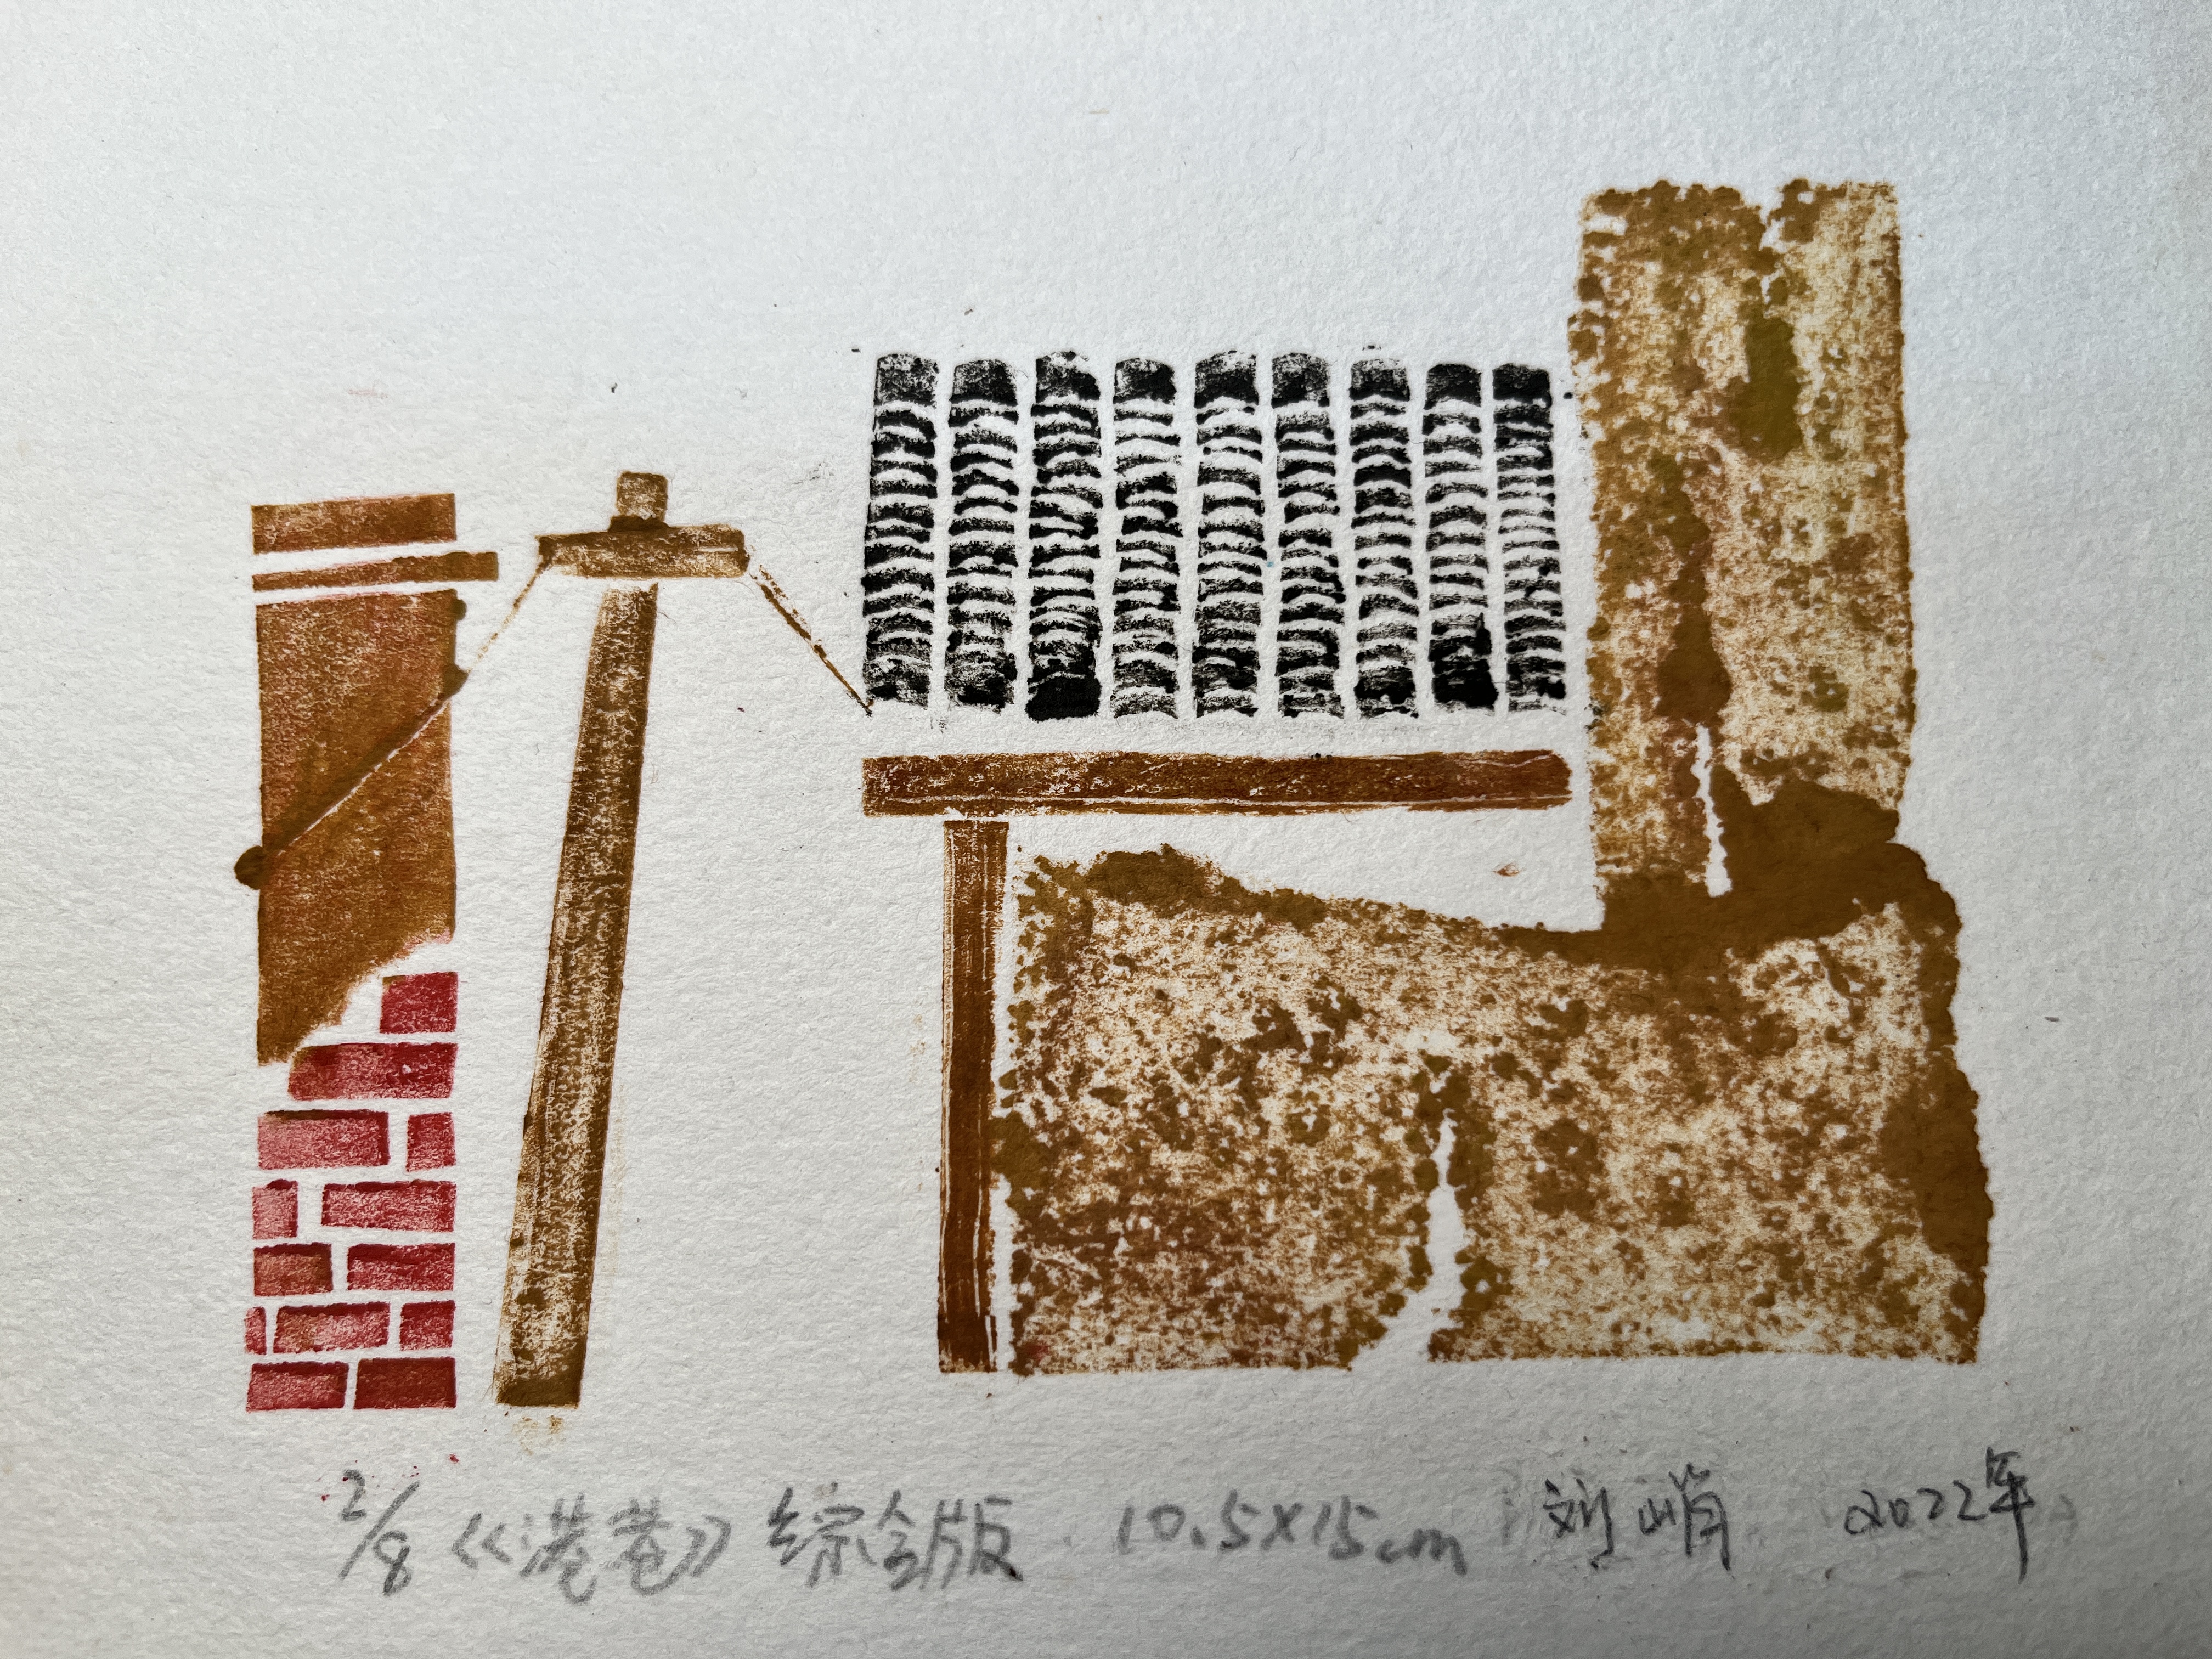 2/8 《港巷》 综合版 10.5×15cm 刘峭 2022年